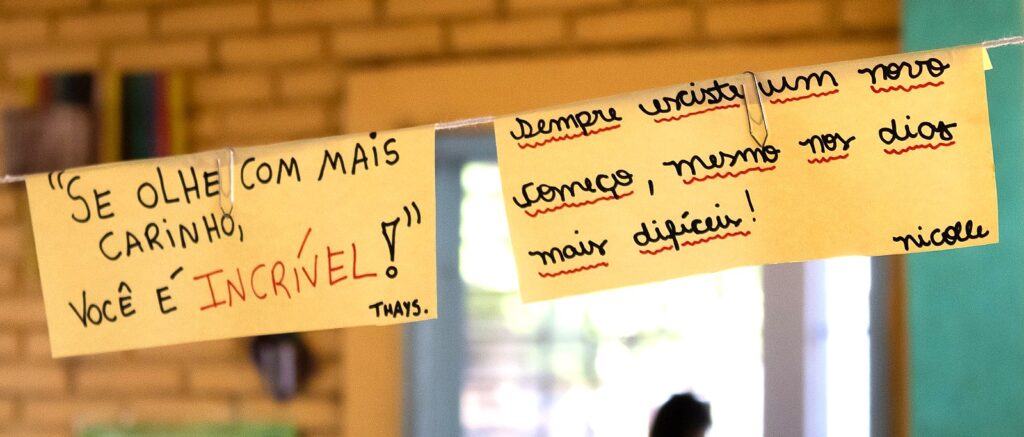 "SE OLHE COM MAIS
CARINHO,
VOCÊ É INCRÍVEL!"
THAYS.
sempre existe um novo
começo, mesmo nos dias
mais difíceis!
nicolle